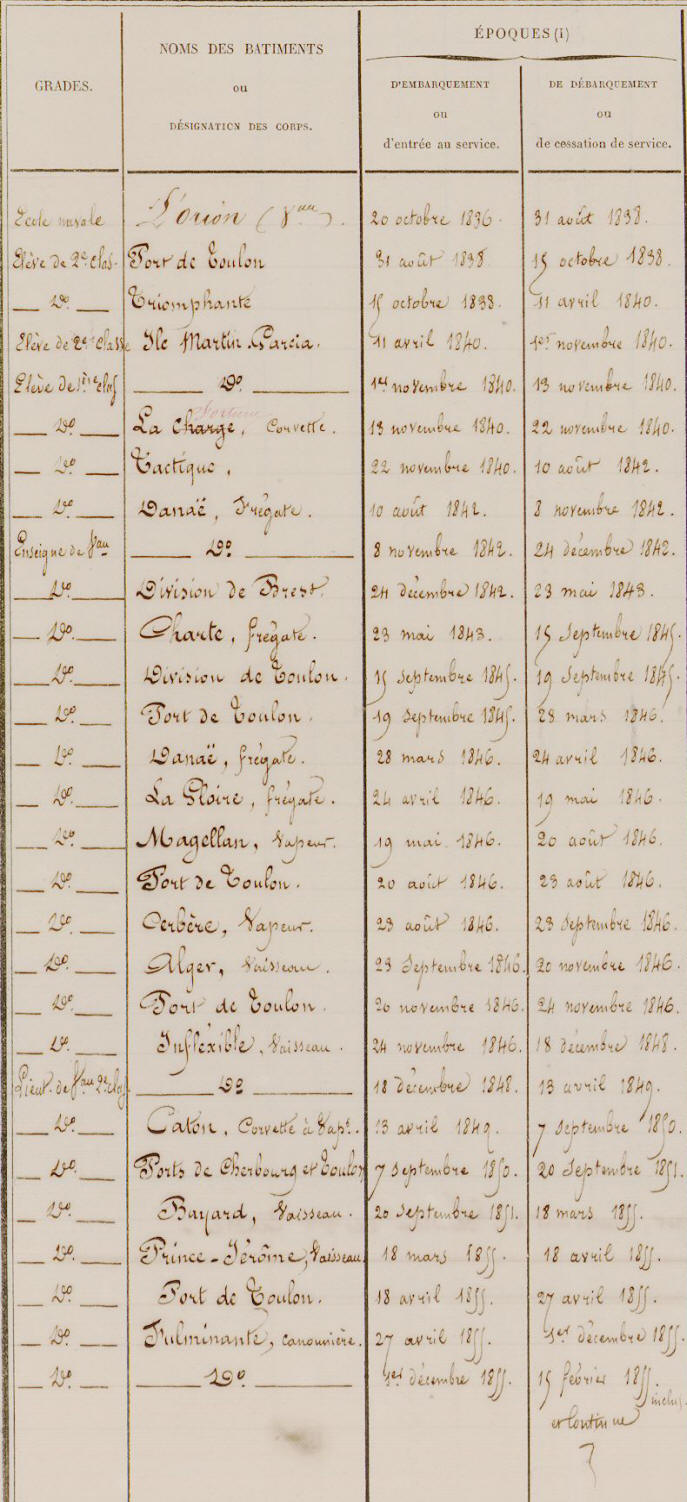 GRADES.
NOMS DES BATIMENTS
ou
DÉSIGNATION DES CORPS.
ÉPOQUES (1)
D'EMBARQUEMENT
ou
d'entrée au service.
DE DÉBARQUEMENT
ou
de cessation de service.
Ecole navale L'orion (Vau). 20 octobre 1836. 31 août 1838.
Elève de 2e clas. Port de Toulon 31 août 1838 15 octobre 1838.
— Do — Triomphante 15 octobre 1838. 11 avril 1840.
Elève de 2e classe Ile Martin Garcia. 11 avril 1840. 1er novembre 1840.
Elève de 1ère clas — Do — 1er novembre 1840. 13 novembre 1840.
Fortune
— Do — La Charge, Corvette. 13 novembre 1840. 22 novembre 1840.
— Do — Tactique, 22 novembre 1840. 10 août 1842.
— Do — Danaë, Frégate. 10 août 1842. 8 novembre 1842.
Enseigne de Vau — Do — 8 novembre 1842. 24 décembre 1842.
— Do — Division de Brest. 24 décembre 1842. 23 mai 1843.
— Do — Charte, frégate. 23 mai 1843. 15 Septembre 1845.
— Do — Division de Toulon. 15 Septembre 1845. 19 Septembre 1845.
— Do — Port de Toulon. 19 Septembre 1845. 28 mars 1846.
— Do — Danaë, frégate. 28 mars 1846. 24 avril 1846.
— Do — La Gloire, frégate. 24 avril 1846. 19 mai 1846.
— Do — Magellan, Vapeur. 19 mai 1846. 20 août 1846.
— Do — Port de Toulon. 20 août 1846. 23 août 1846.
— Do — Cerbère, Vapeur. 23 août 1846. 23 Septembre 1846.
— Do — Alger, Vaisseau. 23 Septembre 1846. 20 novembre 1846.
— Do — Port de Toulon. 20 novembre 1846. 24 novembre 1846.
— Do — Infléxible, Vaisseau. 24 novembre 1846. 18 décembre 1848.
Lieut. de Vau 2e clas — Do — 18 décembre 1848. 13 avril 1849.
— Do — Caton, Corvette à Vapr. 13 avril 1849. 7 Septembre 1850.
— Do — Ports de Cherbourg et Toulon 7 Septembre 1850. 20 Septembre 1851.
— Do — Bayard, Vaisseau. 20 Septembre 1851. 18 mars 1855.
— Do — Prince-Jérôme, Vaisseau 18 mars 1855. 18 avril 1855.
— Do — Port de Toulon. 18 avril 1855. 27 avril 1855.
— Do — Fulminante, canonnière. 27 avril 1855. 1er décembre 1855.
— Do — — Do — 1er décembre 1855. 15 février 1855.
inclus.
et Continue